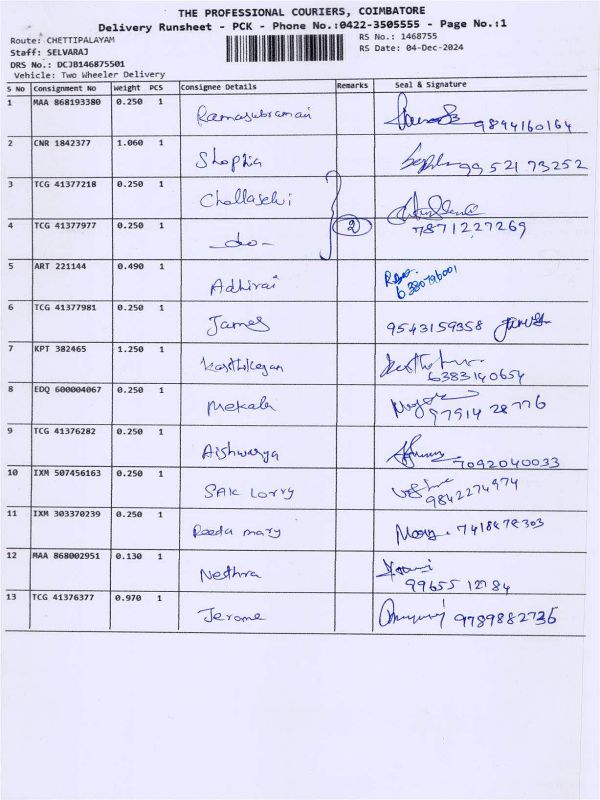 THE PROFESSIONAL COURIERS, COIMBATORE
Delivery Runsheet - PCK - Phone No.:0422-3505555 - Page No.:1
Route: CHETTIPALAYAM RS No.: 1468755
Staff: SELVARAJ RS Date: 04-Dec-2024
DRS No.: DCJB146875501
Vehicle: Two Wheeler Delivery
S No Consignment No Weight PCS Consignee Details Remarks Seal & Signature
1 MAA 868193380 0.250 1 Ramasubramani 9894160164
2 CNR 1842377 1.060 1 Shophia 99521 73252
3 TCG 41377218 0.250 1 Challaselvi
4 TCG 41377977 0.250 1 -do- 2 7871227269
5 ART 221144 0.490 1 Adhirai
6 TCG 41377981 0.250 1 James 9543159358 James
7 KPT 382465 1.250 1 Karthikeyan 6383140654
8 EDQ 600004067 0.250 1 Mekala 97914 28776
9 TCG 41376282 0.250 1 Aishwarya 7092040033
10 IXM 507456163 0.250 1 SAK Lorry 9842274974
11 IXM 303370239 0.250 1 Reeda mary Mary.
12 MAA 868002951 0.130 1 Nethra 99655 12184
13 TCG 41376377 0.970 1 Jerome 9789882736